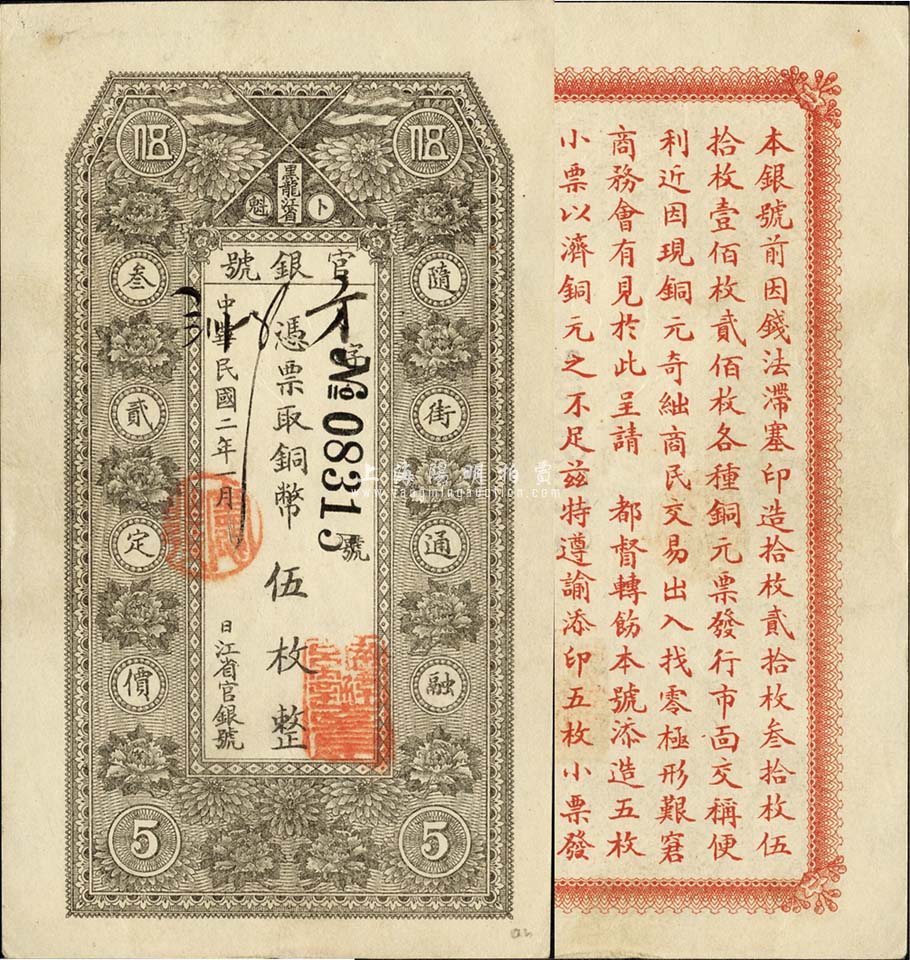 伍 伍
黑龍江省
卜魁
官銀號
隨街通融
叁貳定價
字№ 08315號
憑票取銅幣伍枚整
中華民國二年一月 日江省官銀號
5 5
本銀號前因錢法滯塞印造拾枚貳拾枚叁拾枚伍
拾枚壹佰枚貳佰枚各種銅元票發行市面交稱便
利近因現銅元奇絀商民交易出入找零極形艱窘
商務會有見於此呈請 都督轉飭本號添造五枚
小票以濟銅元之不足茲特遵諭添印五枚小票發
上海陽明拍賣
www.yangmingauction.com